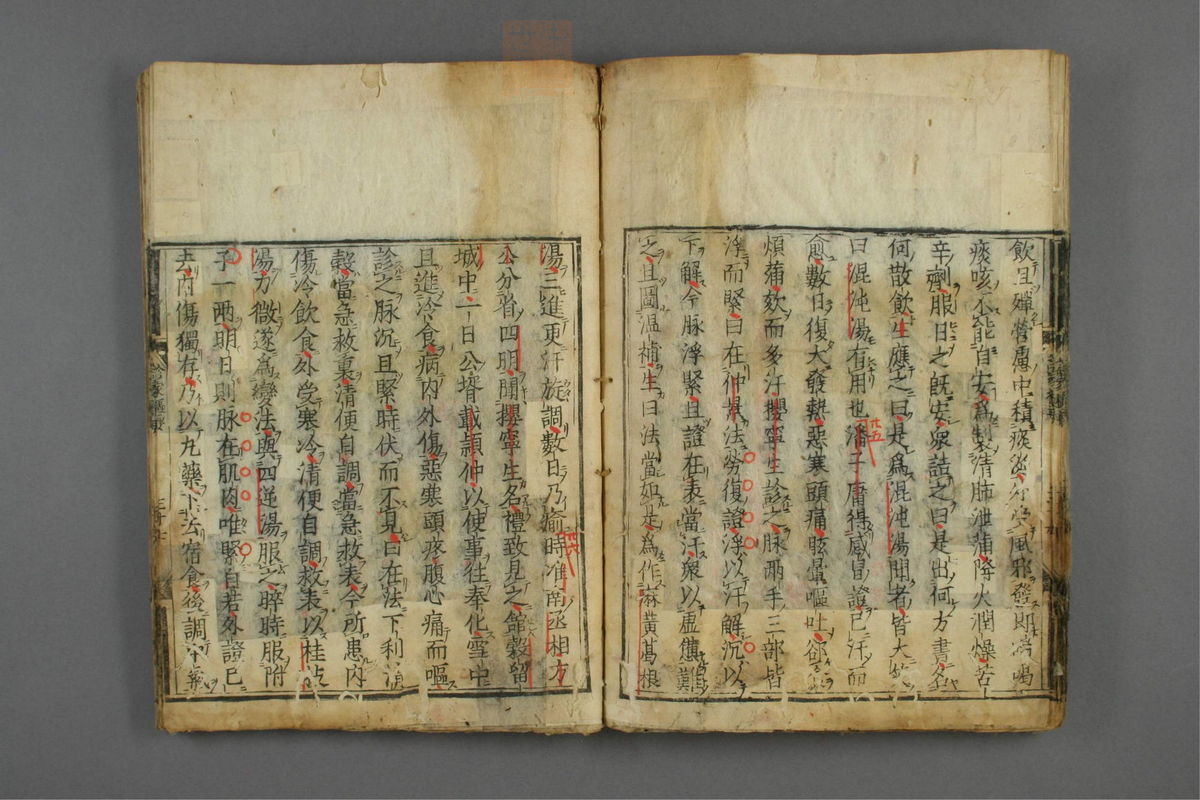 飲且殫營慮中積痰涎外受風邪發則喘喝
痰咳不能自安爲製清肺泄滿降火潤燥苦
辛劑服日之既安衆詰之曰是出何方書名
何散飲生應之曰是爲混沌湯聞者皆大笑
曰混沌湯有用也潘子庸得感冒證已汗而
愈數日復大發熱惡寒頭痛眩暈嘔吐卻食
煩滿欬而多汗攖寧生診之脉兩手三部皆
浮而緊曰在仲景法勞復證浮以汗解沉以
下解今脉浮緊且證在表當汗衆以虚憊難
之且圖温補生曰法當如是爲作麻黄葛根
湯三進更汗旋調數日乃瘉時淮南丞相方
公分省四明聞攖寧生名禮致見之館穀留
城中一日公壻戴穎仲以使事往奉化雪中
且進冷食病内外傷惡寒頭疼腹心痛而嘔
診之脉沉且緊時伏而不見曰在法下利清
穀當急救裏清便自調當急救表今所患内
傷冷飲食外受寒冷清便自調救表以桂枝
湯力微遂爲變法與四逆湯服之晬時服附
子一兩明日則脉在肌肉唯緊自若外證已
去内傷獨存乃以丸藥下去宿食後調中氣
廿五
廿六